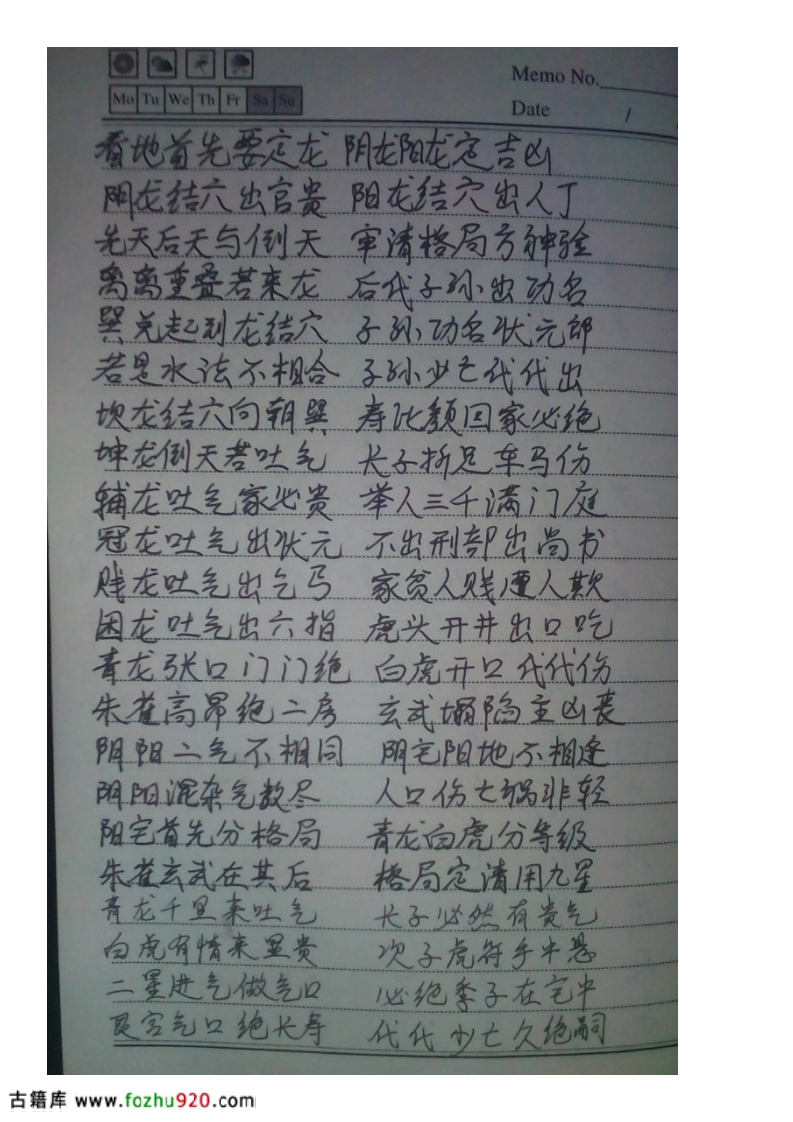 Memo No.
Mo Tu We Th Fr Sa Su
Date /
看地首先要定龙 阴龙阳龙定吉凶
阴龙结穴出官贵 阳龙结穴出人丁
先天后天与倒天 审清格局方神验
离离重叠若来龙 后代子孙出功名
巽兑起到龙结穴 子孙功名状元郎
若是水法不相合 子孙少亡代代出
坎龙结穴向朝巽 寿比颜回家必绝
坤龙倒天若吐气 长子折足车马伤
辅龙吐气家必贵 举人三千满门庭
冠龙吐气出状元 不出刑部出尚书
贱龙吐气出乞丐 家贫人贱遭人欺
困龙吐气出六指 虎头开井出口吃
青龙张口门门绝 白虎开口代代伤
朱雀高昂绝二房 玄武塌陷主凶丧
阴阳二气不相同 阴宅阳地不相逢
阴阳混杂气数尽 人口伤亡祸非轻
阳宅首先分格局 青龙白虎分等级
朱雀玄武在其后 格局定清用九星
青龙千里来吐气 长子必然有贵气
白虎有情来显贵 次子虎符手中悬
二星进气做气口 必绝季子在宅中
艮宫气口绝长寿 代代少亡久绝嗣
古籍库 www.fozhu920.com